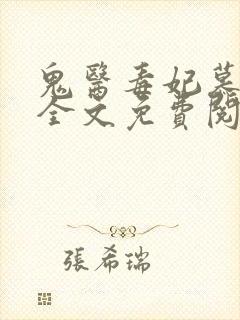 鬼醫毒妃墓
全文免費閱
張希瑞